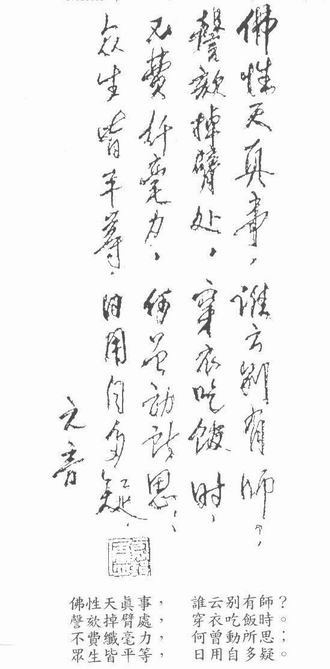 佛性天真事，誰云别有師？
謦欬掉臂处，穿衣吃飯时，
不費纤毫力，何曾動所思；
众生皆平等，日用自多疑。
元音
佛性天眞事，誰云别有師？
謦欬掉臂處，穿衣吃飯時。
不費纖毫力，何曾動所思；
眾生皆平等，日用自多疑。